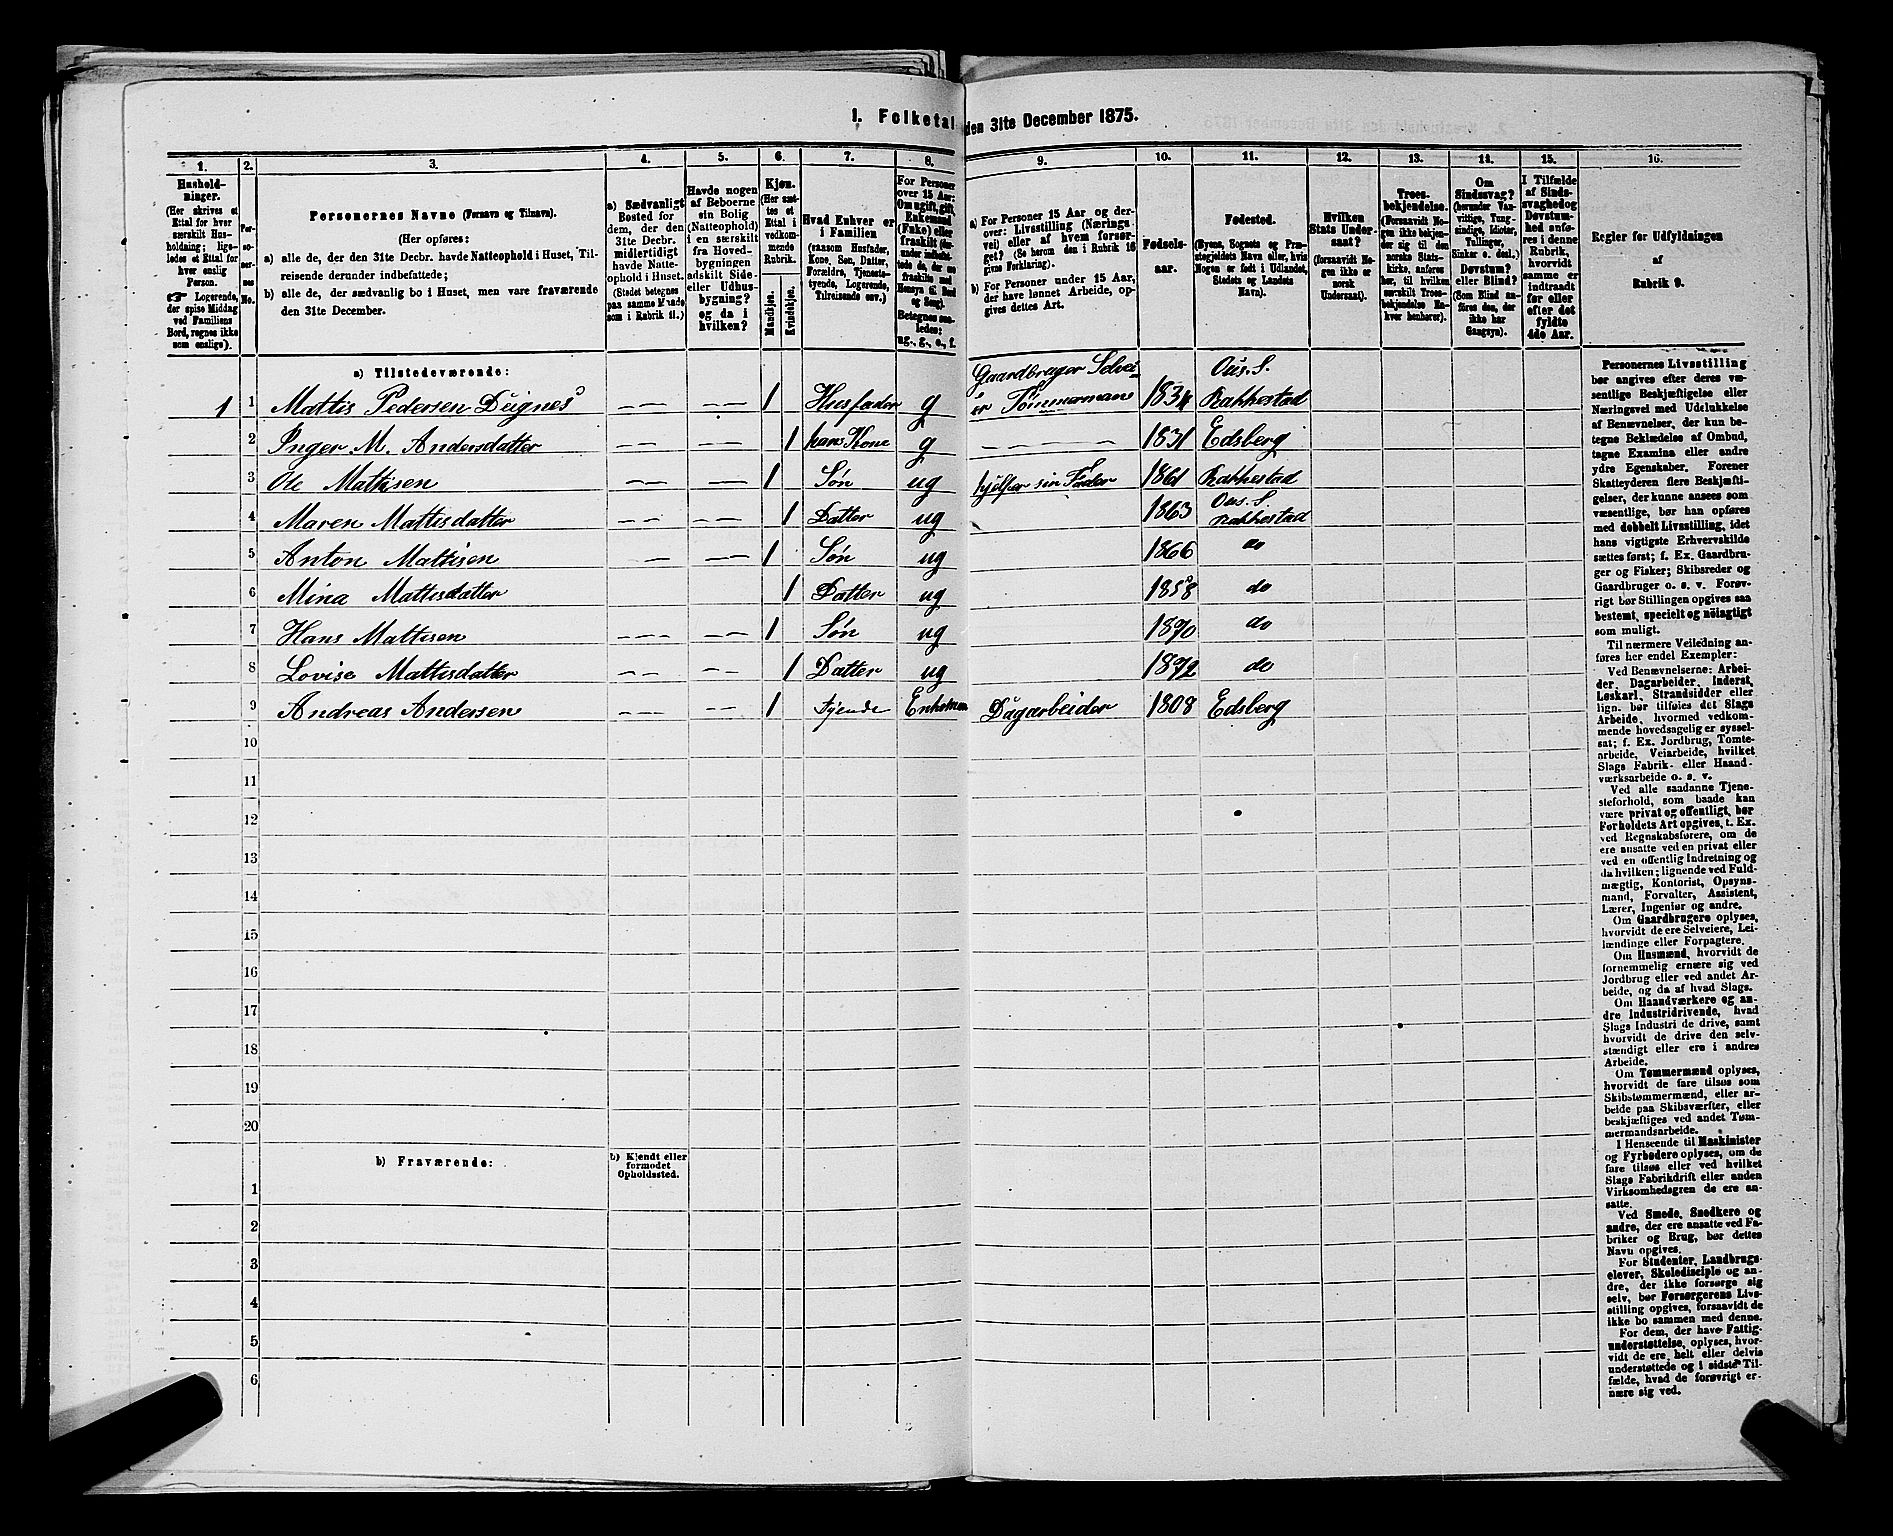 1. Folketal den 31te December 1875.
1. 2. 3. 4. 5. 6. 7. 8. 9. 10. 11. 12. 13. 14. 15. 16.
Hushold-
ninger.
(Her skrives et
Ettal for hver
særskilt Hus-
holdning; lige-
ledes et Ettal for
hver enslig
Person.
☞ Logerende,
der spise Middag
ved Familiens
Bord, regnes ikke
som enslige).
Personernes No.
Personernes Navne (Fornavn og Tilnavn).
(Her opføres:
a) alle de, der den 31te Decbr. havde Natteophold i Huset, Til-
reisende derunder indbefattede;
b) alle de, der sædvanlig bo i Huset, men vare fraværende
den 31te December.
a) Sædvanligt
Bosted for
dem, der den
31te Decbr.
midlertidigt
havde Natte-
ophold i Huset.
(Stedet betegnes
paa samme Maade
som i Rubrik 11.)
Havde nogen
af Beboerne
sin Bolig
(Natteophold)
i en særskilt
fra Hoved-
bygningen
adskilt Side-
eller Udhus-
bygning?
og da i
hvilken?
Kjøn.
(Her sæt-
tes et
Ettal i
vedkom-
mende
Rubrik.
Mandkjøn.
Kvindekjøn.
Hvad Enhver er
i Familien
(saasom Husfader,
Kone, Søn, Datter,
Forældre, Tjeneste-
tyende, Logerende,
Tilreisende osv.)
For Personer
over 15 Aar:
Om ugift, gift,
Enkemand
(Enke) eller
fraskilt
Betegnes saa-
ledes:
ug., g., e., f.
a) For Personer 15 Aar og der-
over: Livsstilling (Nærings-
vei) eller af hvem forsør-
get? (Se herom den i Rubrik 16
givne Forklaring).
b) For Personer under 15 Aar,
der have lønnet Arbeide, op-
gives dettes Art.
Fødsels-
aar.
Fødested.
(Byens, Sognets og Præ-
stegjeldets Navn eller, hvis
Nogen er født i Udlandet,
Stedets og Landets
Navn).
Hvilken
Stats Under-
saat?
(forsaavidt No-
gen ikke er
norsk
Undersaat).
Troes-
bekjendelse.
(Forsaavidt No-
gen ikke bekjen-
der sig til den
norske Stats-
kirke, anføres
her, til hvilken
særskilt Troes-
bekjendelse En-
hver henhører).
Om
Sindssvag?
(herunder Van-
vittige, Tung-
sindige, Idioter,
Tullinger,
Sinker o. desl.)
Døvstum?
eller Blind?
(Som Blind an-
føres den, der
ikke har
Gangsyn).
I Tilfælde
af Sinds-
svaghed og
Døvstum-
hed anfø-
res i denne
Rubrik,
hvorvidt
samme er
indtraadt
før eller
efter det
fyldte
4de Aar.
Regler for Udfyldningen
af
Rubrik 9.
a) Tilstedeværende:
1 1 Mattis Pedersen Dignes — — 1 Husfader g Gaardbruger Selvei-er Tømmerman 1834 Ous. S. Rakkestad
2 Inger M. Andersdatter — — 1 hans Kone g — 1831 Edsberg
3 Ole Mattisen — — 1 Søn ug hjelper sin Fader 1861 Rakkestad
4 Maren Mattisdatter — — 1 Datter ug 1863 Ous. S. Rakkestad
5 Anton Mattisen — — 1 Søn ug 1866 do
6 Mina Mattisdatter — — 1 Datter ug 1858 do
7 Hans Mattisen — — 1 Søn ug 1870 do
8 Lovise Mattisdatter — — 1 Datter ug 1872 do
9 Andreas Andersen — — 1 tyende Dagarbeider 1808 Edsberg
10
11
12
13
14
15
16
17
18
19
20
b) Fraværende:
b) Kjendt eller
formodet
Opholdssted.
1
2
3
4
5
6
Personernes Livsstilling
bør angives efter deres væ-
sentlige Beskjæftigelse eller
Næringsvei med Udelukkelse
af Benævnelser, der kun be-
tegne Beklædelse af Ombud,
tagne Examina eller andre
ydre Egenskaber. Forener
Skatteyderen flere Beskjæfti-
gelser, der kunne ansees som
væsentlige, bør han opføres
med dobbelt Livsstilling, idet
hans vigtigste Erhvervskilde
sættes først; f. Ex. Gaardbru-
ger og Fisker; Skibsreder og
Gaardbruger o. s. v. Forøv-
rigt bør Stillingen opgives saa
bestemt, specielt og nøiagtigt
som muligt.
Til nærmere Veiledning an-
føres her endel Exempler:
Ved Benævnelserne: Arbei-
der, Dagarbeider, Inderst,
Løskarl, Strandsidder eller
lign. bør tilføies det Slags
Arbeide, hvormed vedkom-
mende hovedsagelig er syssel-
sat; f. Ex. Jordbrug, Tomte-
arbeide, Veiarbeide, hvilket
Slags Fabrik- eller Haand-
værksarbeide o. s. v.
Ved alle saadanne Tjene-
steforhold, som baade kan
være privat og offentligt, bør
Forholdets Art opgives, t. Ex.
ved Regnskabsførere, om de
ere ansatte ved en privat eller
ved en offentlig Indretning og
da hvilken; lignende ved Fuld-
mægtig, Kontorist, Opsyns-
mand, Forvalter, Assistent,
Lærer, Ingeniør og andre.
Om Gaardbrugere oplyses,
hvorvidt de ere Selveiere, Lei-
lændinge eller Forpagtere.
Om Husmænd, hvorvidt de
fornemmelig ernære sig ved
Jordbrug eller ved andet Ar-
beide, og da af hvad Slags.
Om Haandværkere og an-
dre Industridrivende, hvad
Slags Industri de drive, samt
hvorvidt de drive den selv-
stændigt eller ere i andres
Arbeide.
Om Tømmermænd oplyses,
hvorvidt de fare tilsøs som
Skibstømmermænd, eller ar-
beide paa Skibsværfter, eller
beskjæftiges ved andet Tøm-
mermandsarbeide.
I Henseende til Maskinister
og Fyrbødere oplyses, om de
fare tilsøs eller ved hvilket
Slags Fabrikdrift eller anden
Virksomhedsgren de ere an-
satte.
Ved Smede, Snedkere og
andre, der ere ansatte ved Fa-
briker og Brug, bør dettes
Navn opgives.
For Studenter, Landbrugs-
elever, Skoledisciple og an-
dre, der ikke forsørge sig
selv, bør Forsørgerens Livs-
stilling opgives, forsaavidt de
ikke bo sammen med denne.
For dem, der have Fattig-
understøttelse, oplyses, hvor-
vidt de ere helt eller delvis
understøttede og i sidste Til-
fælde, hvad de forøvrigt er-
nære sig ved.